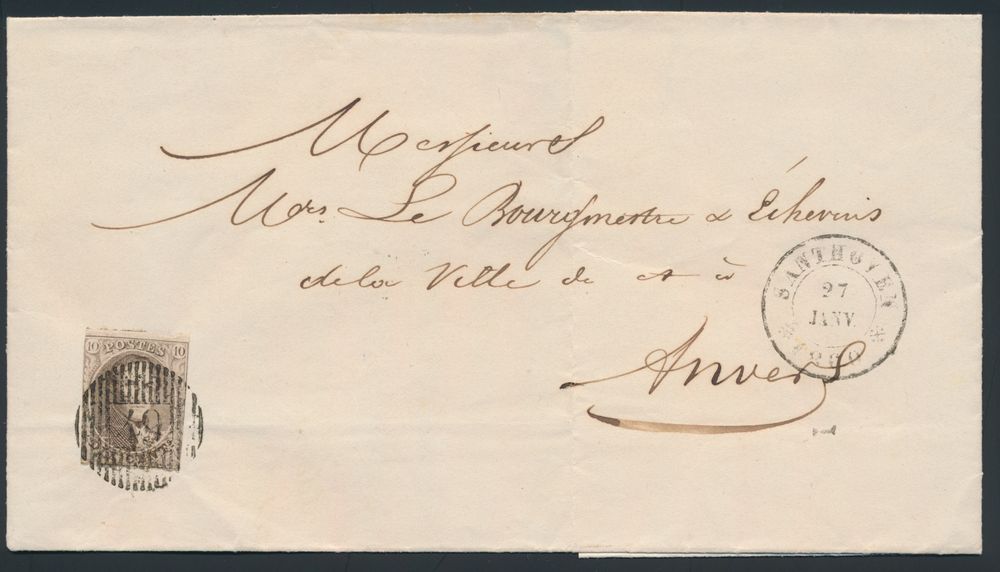 Messieurs
Mrs. Le Bourgmestre & Echevins
de la Ville de et à
Anvers
SANTHOVEN
27
JANV.
1860
10 POSTES 10